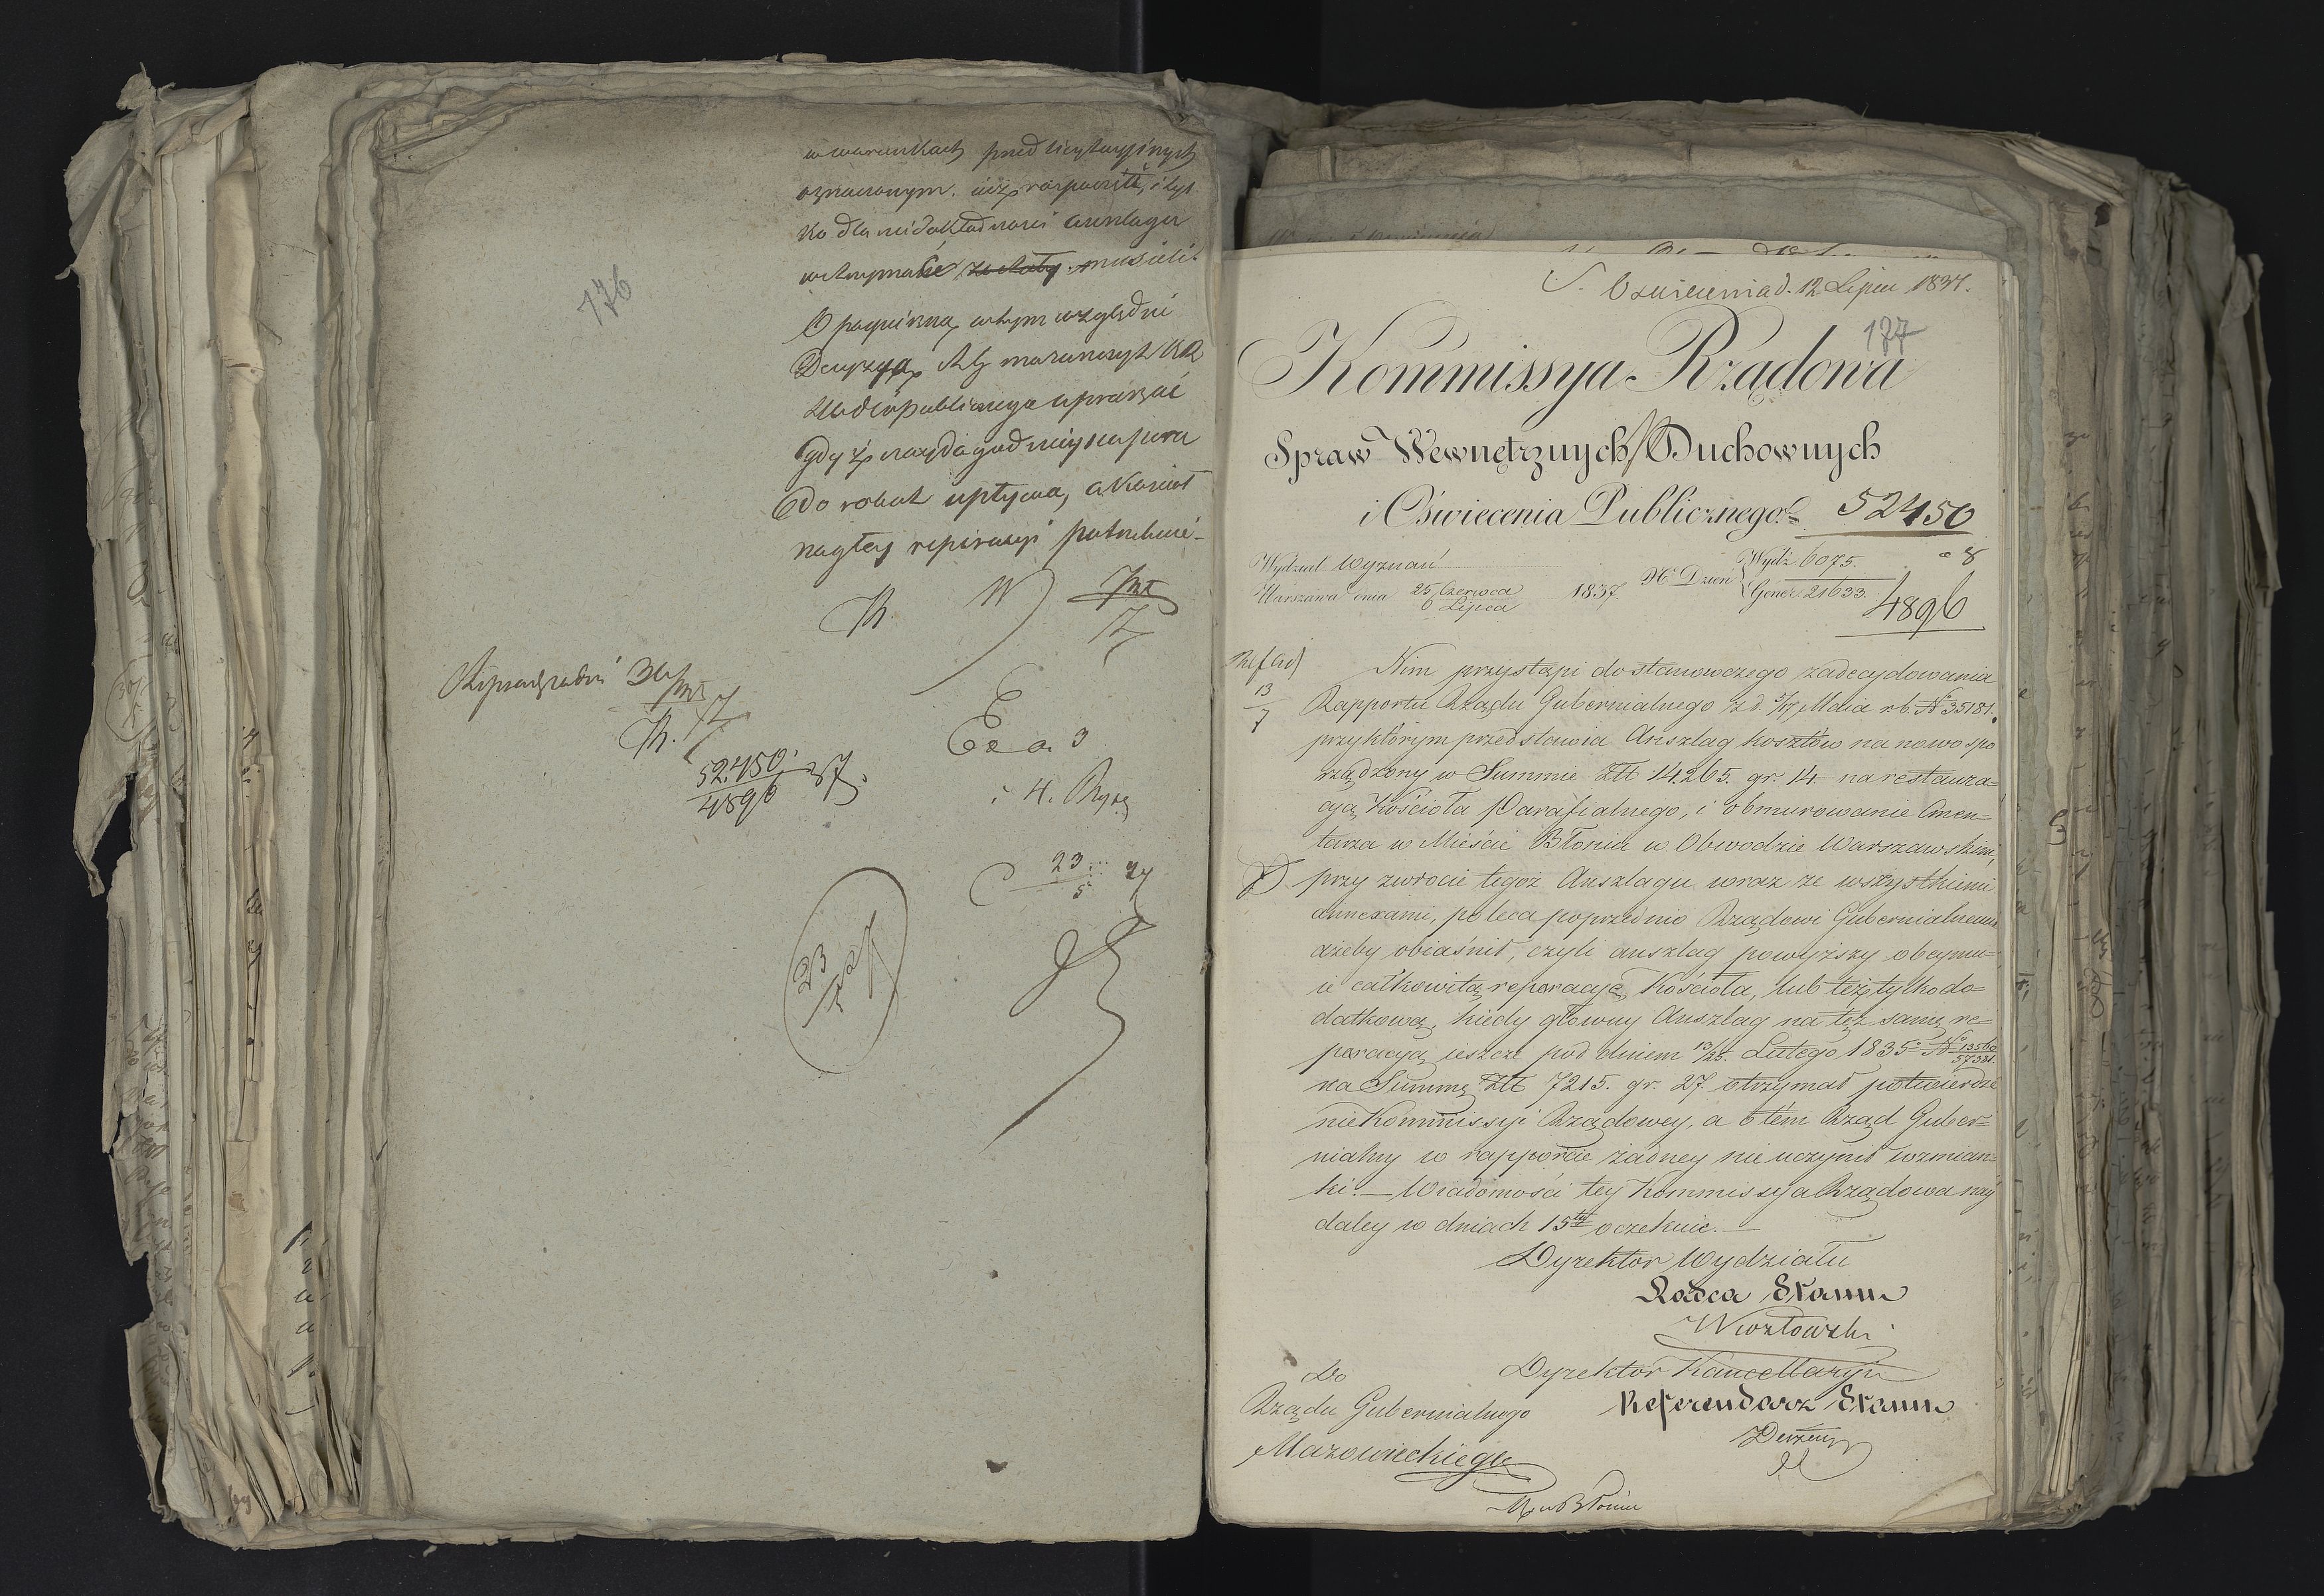 176
w warunkach przed licytacyjnych
oznaczonym, już rozpoczęli, i tyl
ko dla niedokładności anszlagu
wstrzymać musieli.
O pośpieszną w tym względzie
Decyzyą
publicznego upraszać
gdyż
do robót upływa, a Kościół
nagłey reperacyi potrzebuie
52450
4896
i 4. Ryss
23
5
23
5 37
12 Lipca 1837.
177
Kommissya Rządowa
Spraw Wewnętrznych Duchownych
i Oświecenia Publicznego.
52450
8
Wydział Wyznań
Warszawa dnia 25 Czerwca
6 Lipca
1837.
No Dzien
Wydz. 6075.
Gener. 21633.
4896
13
7
Nim przystąpi do stanowczego zadecydowania
Rapportu Rządu Gubernialnego z d. 5/17 Maia r.b. No 35181.
przy którym przedstawia Anszlag kosztów na nowo spo
rządzony w Summie Złt 14265. gr. 14 na restaura=
cyą Kościoła Parafialnego, i obmurowanie Cmen=
tarza w Mieście Błoniu w Obwodzie Warszawskim,
przy zwrocie tegoż Anszlagu wraz ze wszystkiemi
annexami, poleca poprzednio Rządowi Gubernialnemu
ażeby obiaśnił, czyli anszlag powyższy obeymu=
ie całkowitą reperacyę Kościoła, lub też tylko do=
datkową, kiedy główny Anszlag na też samę re=
peracyą ieszcze pod dniem 13/25 Lutego 1835 No 13560/57381.
na Summę Złt 7215. gr. 27. otrzymał potwierdze
nie Kommissyi Rządowey, a o tém Rząd Guber=
nialny w rapporcie żadney nie uczynił wzmian=
ki. — Wiadomości tey Kommissya Rządowa nay
daley w dniach 15tu oczekuie. —
Dyrektor Wydziału
Radca Stanu
Dyrektor Kancellaryi
Referendarz Stanu
Do
Rządu Gubernialnego
Mazowieckiego
M. Błoniu